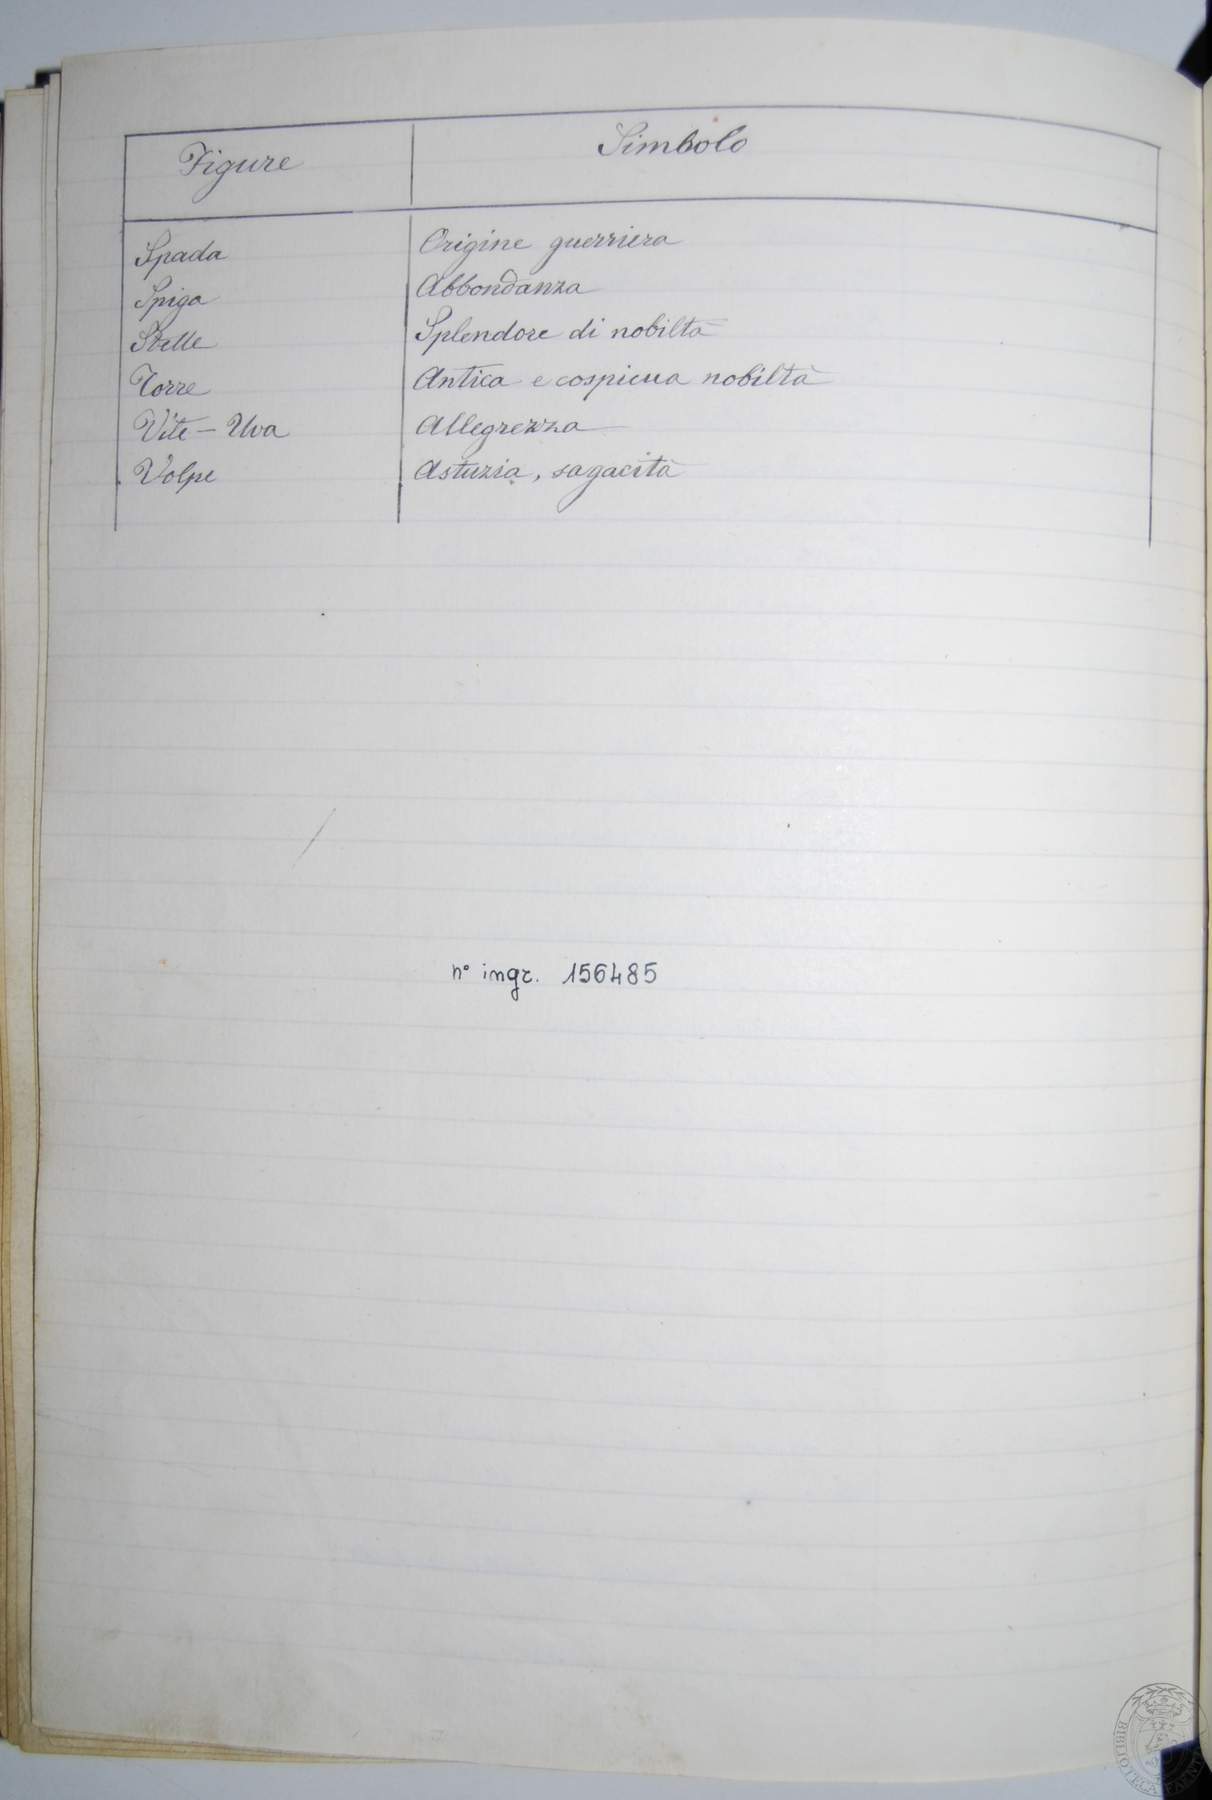 Figure Simbolo
Spada Origine guerriera
Spiga Abbondanza
Stelle Splendore di nobiltà
Torre Antica e cospicua nobiltà
Vite – Uva Allegrezza
Volpe Astuzia, sagacità
n° ingr. 156485